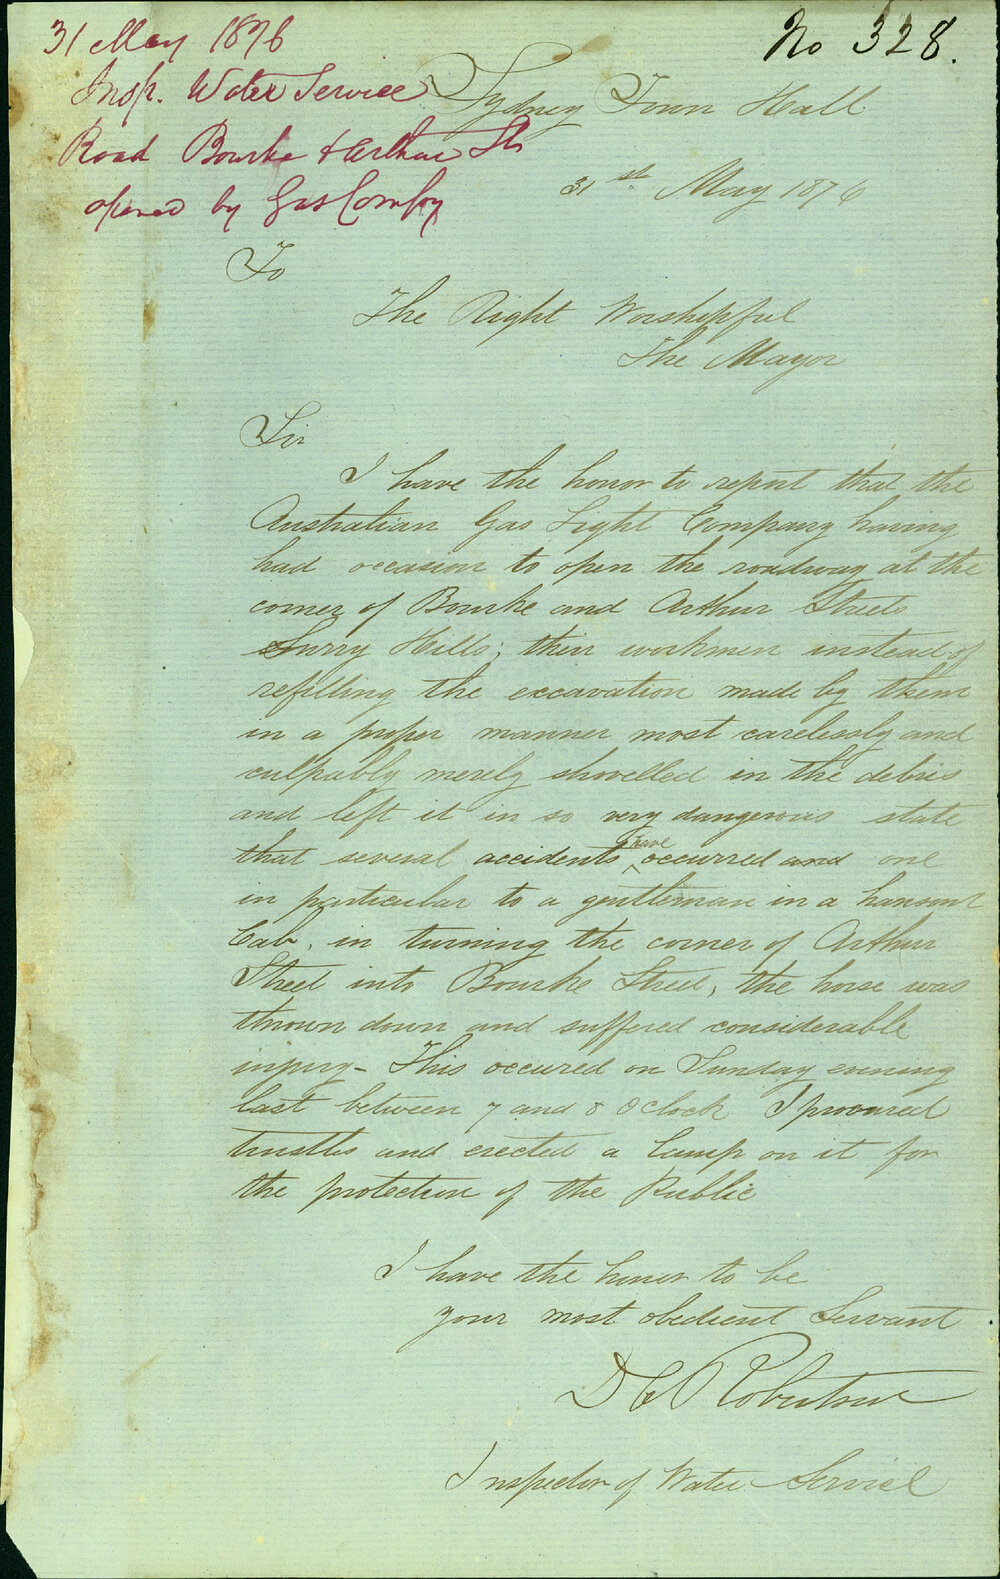 31 May 1876
Insp. Water Service
Road Bourke & Arthur Sts
opened by Gas Compy
No 328.
Sydney Town Hall
31st May 1876
To
The Right Worshipful
The Mayor
Sir
I have the honor to report that the
Australian Gas Light Company having
had occasion to open the roadway at the
corner of Bourke and Arthur Streets
Surry Hills; their workmen instead of
refilling the excavation made by them
in a proper manner most carelessly and
culpably merely shovelled in the debris
and left it in so very dangerous state
that several accidents have occurred and one
in particular to a gentleman in a hansom
Cab, in turning the corner of Arthur
Street into Bourke Street, the horse was
thrown down and suffered considerable
injury - This occured on Sunday evening
last between 7 and 8 oclock I procured
trustles and erected a lamp on it for
the protection of the Public
I have the honor to be
your most obedient Servant
D C Robertson
Inspector of Water Service